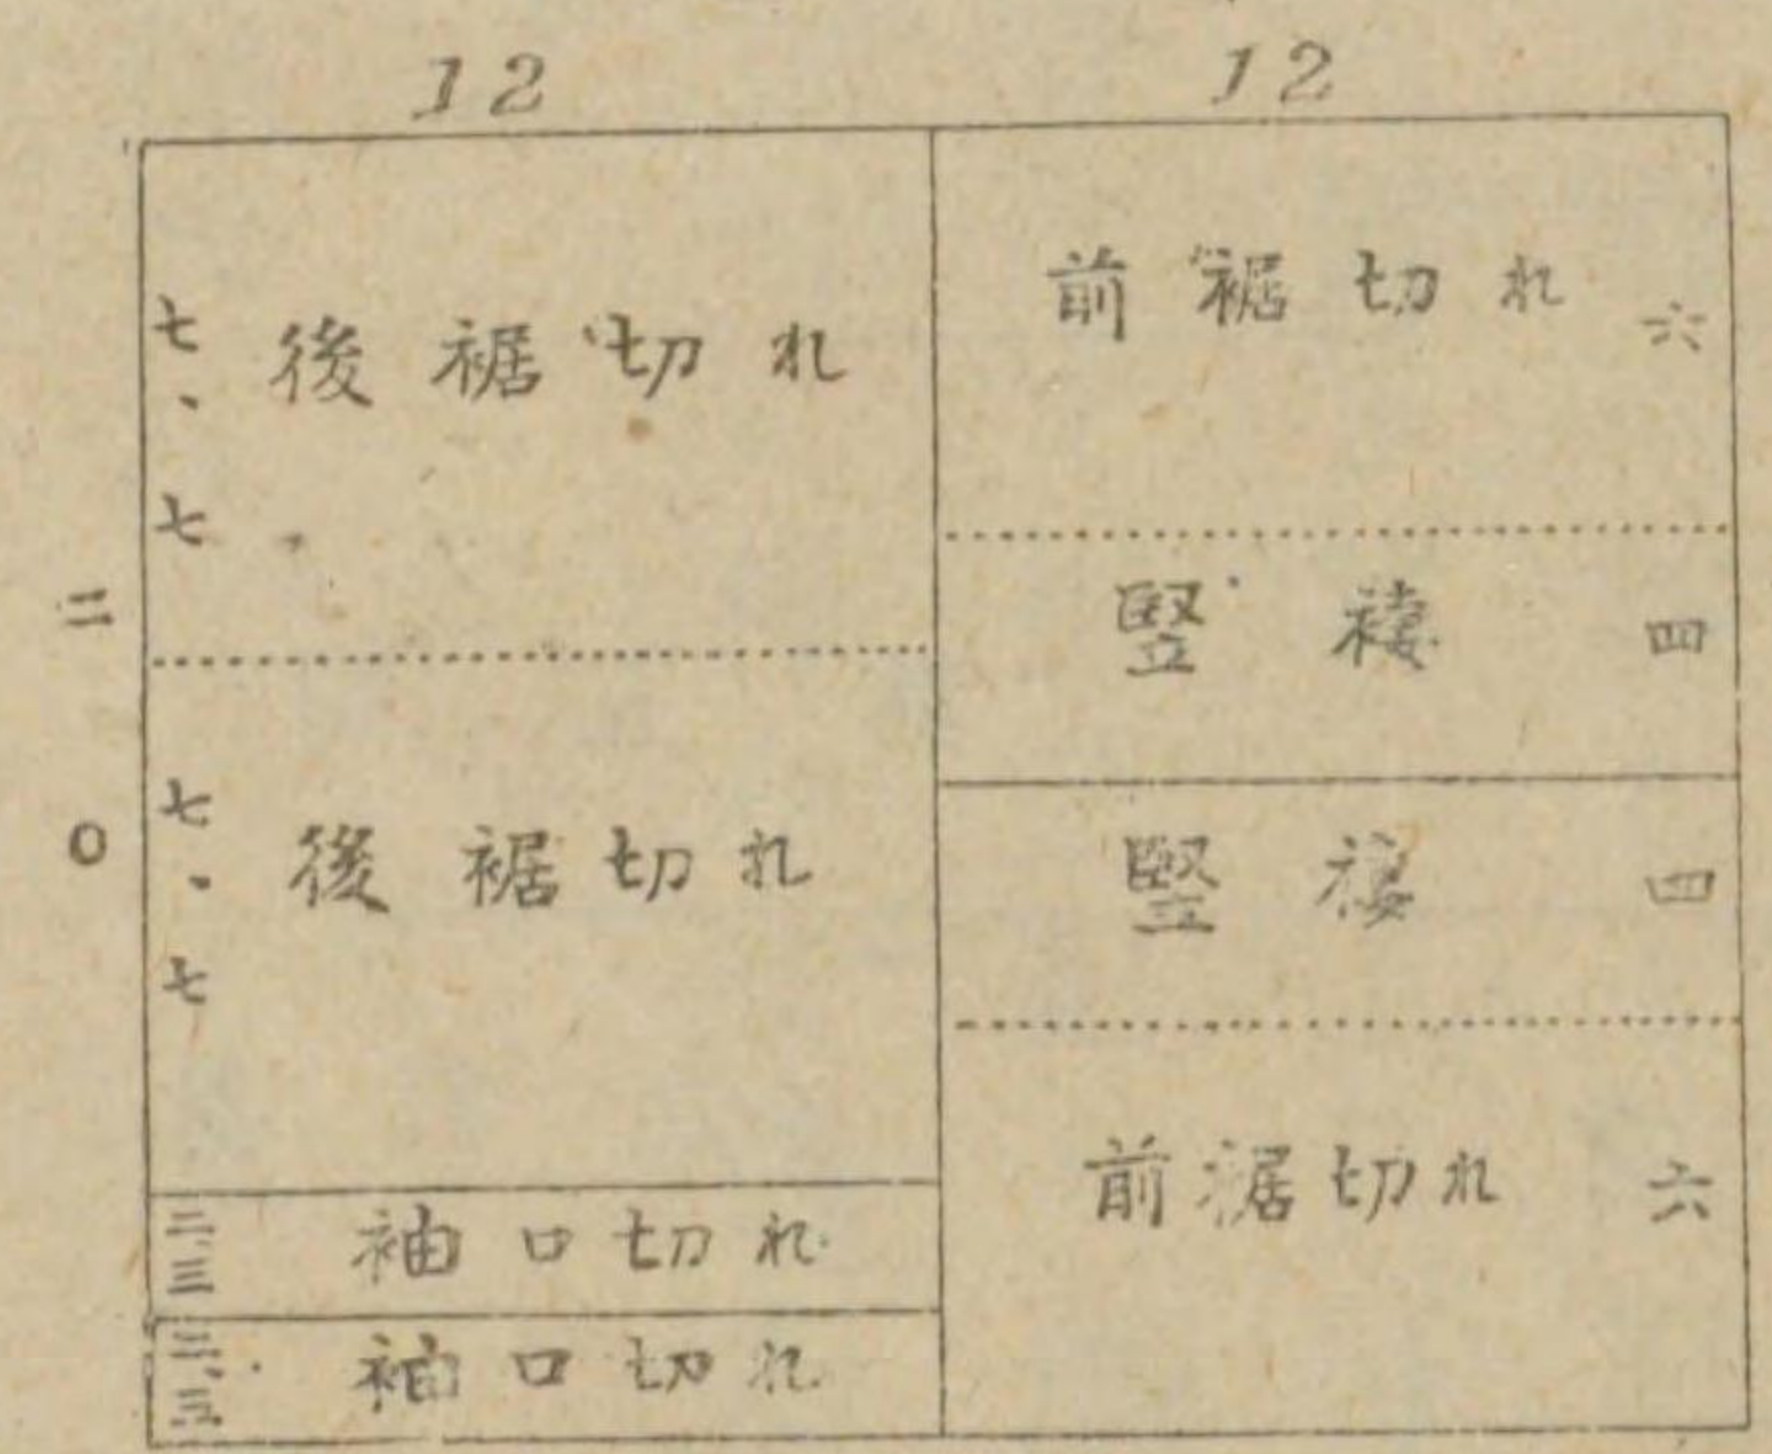 12
12
二〇
七、七
後裾切れ
七、七
後裾切れ
二、三
袖口切れ
二、三
袖口切れ
前裾切れ
六
竪褄
四
竪褄
四
前裾切れ
六